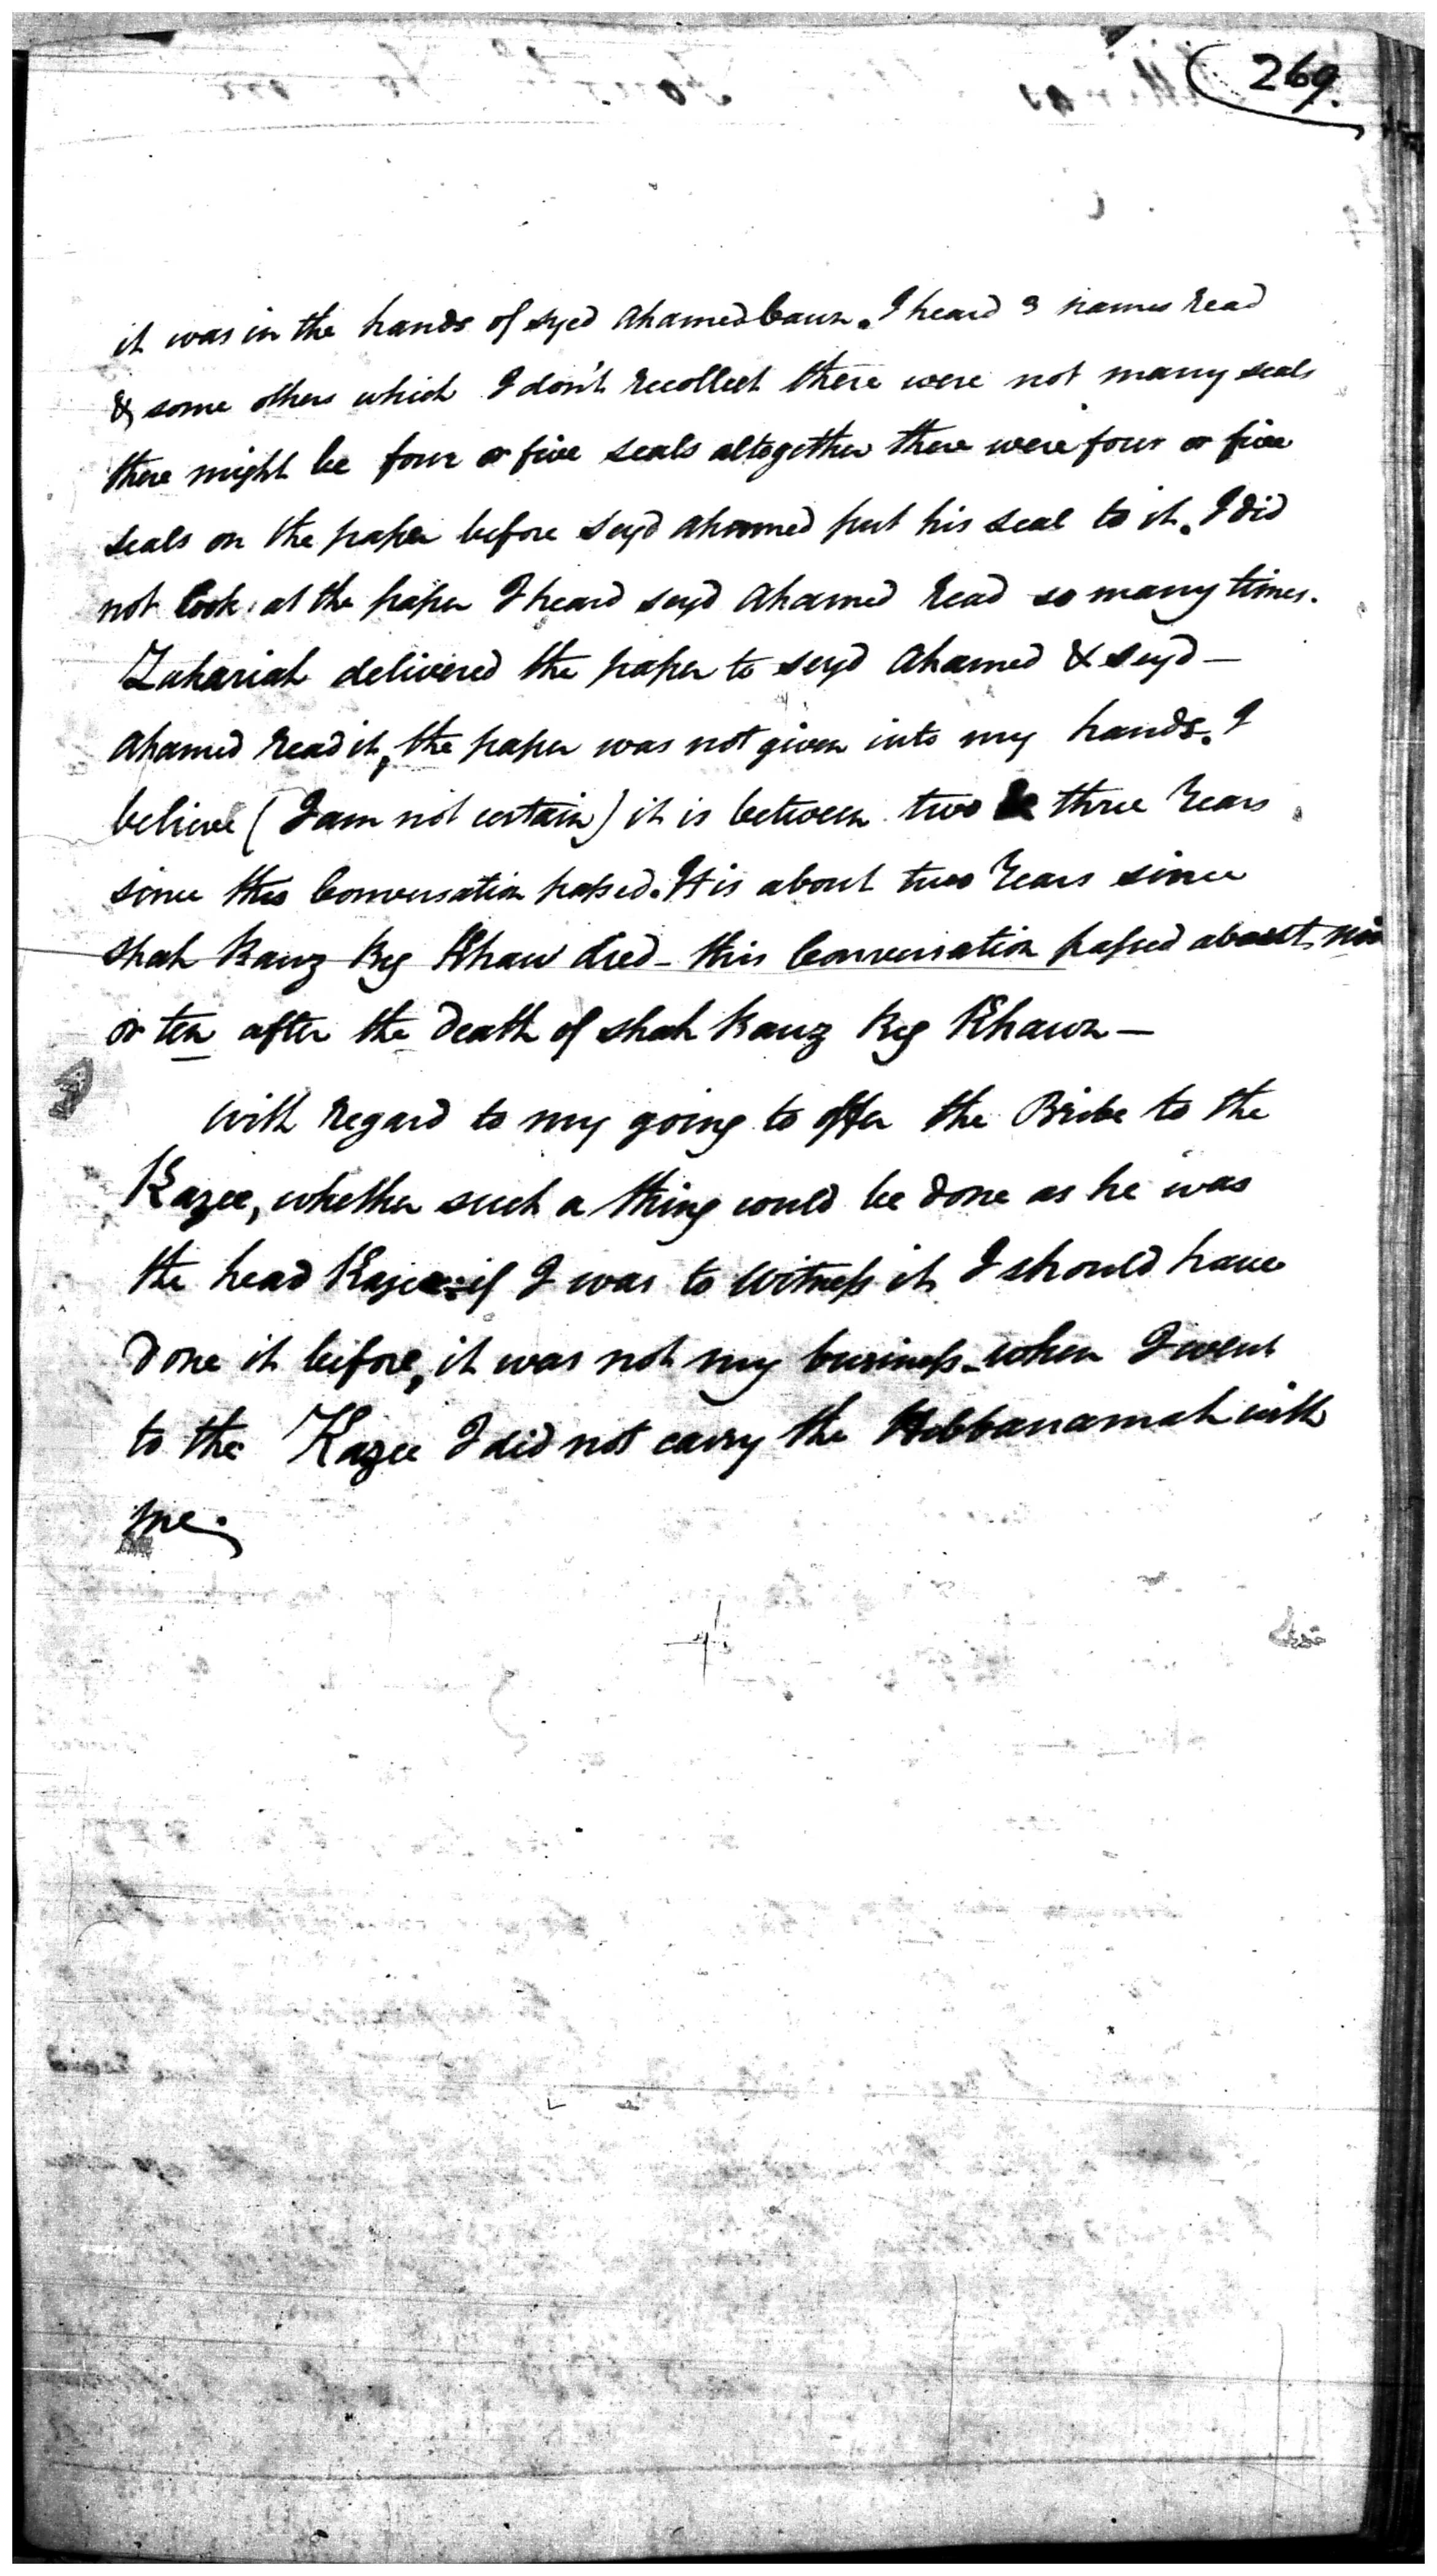 269.
it was in the hands of syed Ahamed Caun. I heard 3 names read
& some others which I don't recollect there were not many seals
there might be four or five seals altogether there were four or five
seals on the paper before seyd Ahamed put his seal to it. I did
not look at the paper I heard seyd Ahamed read so many times.
Zuhariah delivered the paper to seyd Ahamed & seyd -
Ahamed read it, the paper was not given into my hands. I
believe (I am not certain) it is between two & three Years
since this Conversation passed. It is about two Years since
Shah Bauz Beg Khaun died - this Conversation passed about nin
or ten after the Death of Shah Bauz Beg Khawn -
with regard to my going to offer the Bribe to the
Kazee, whether such a thing could be done as he was
the head Kazee: if I was to Witness it I should have
Done it before, it was not my business - when I went
to the Kazee I did not carry the Hibbanamah with
me.